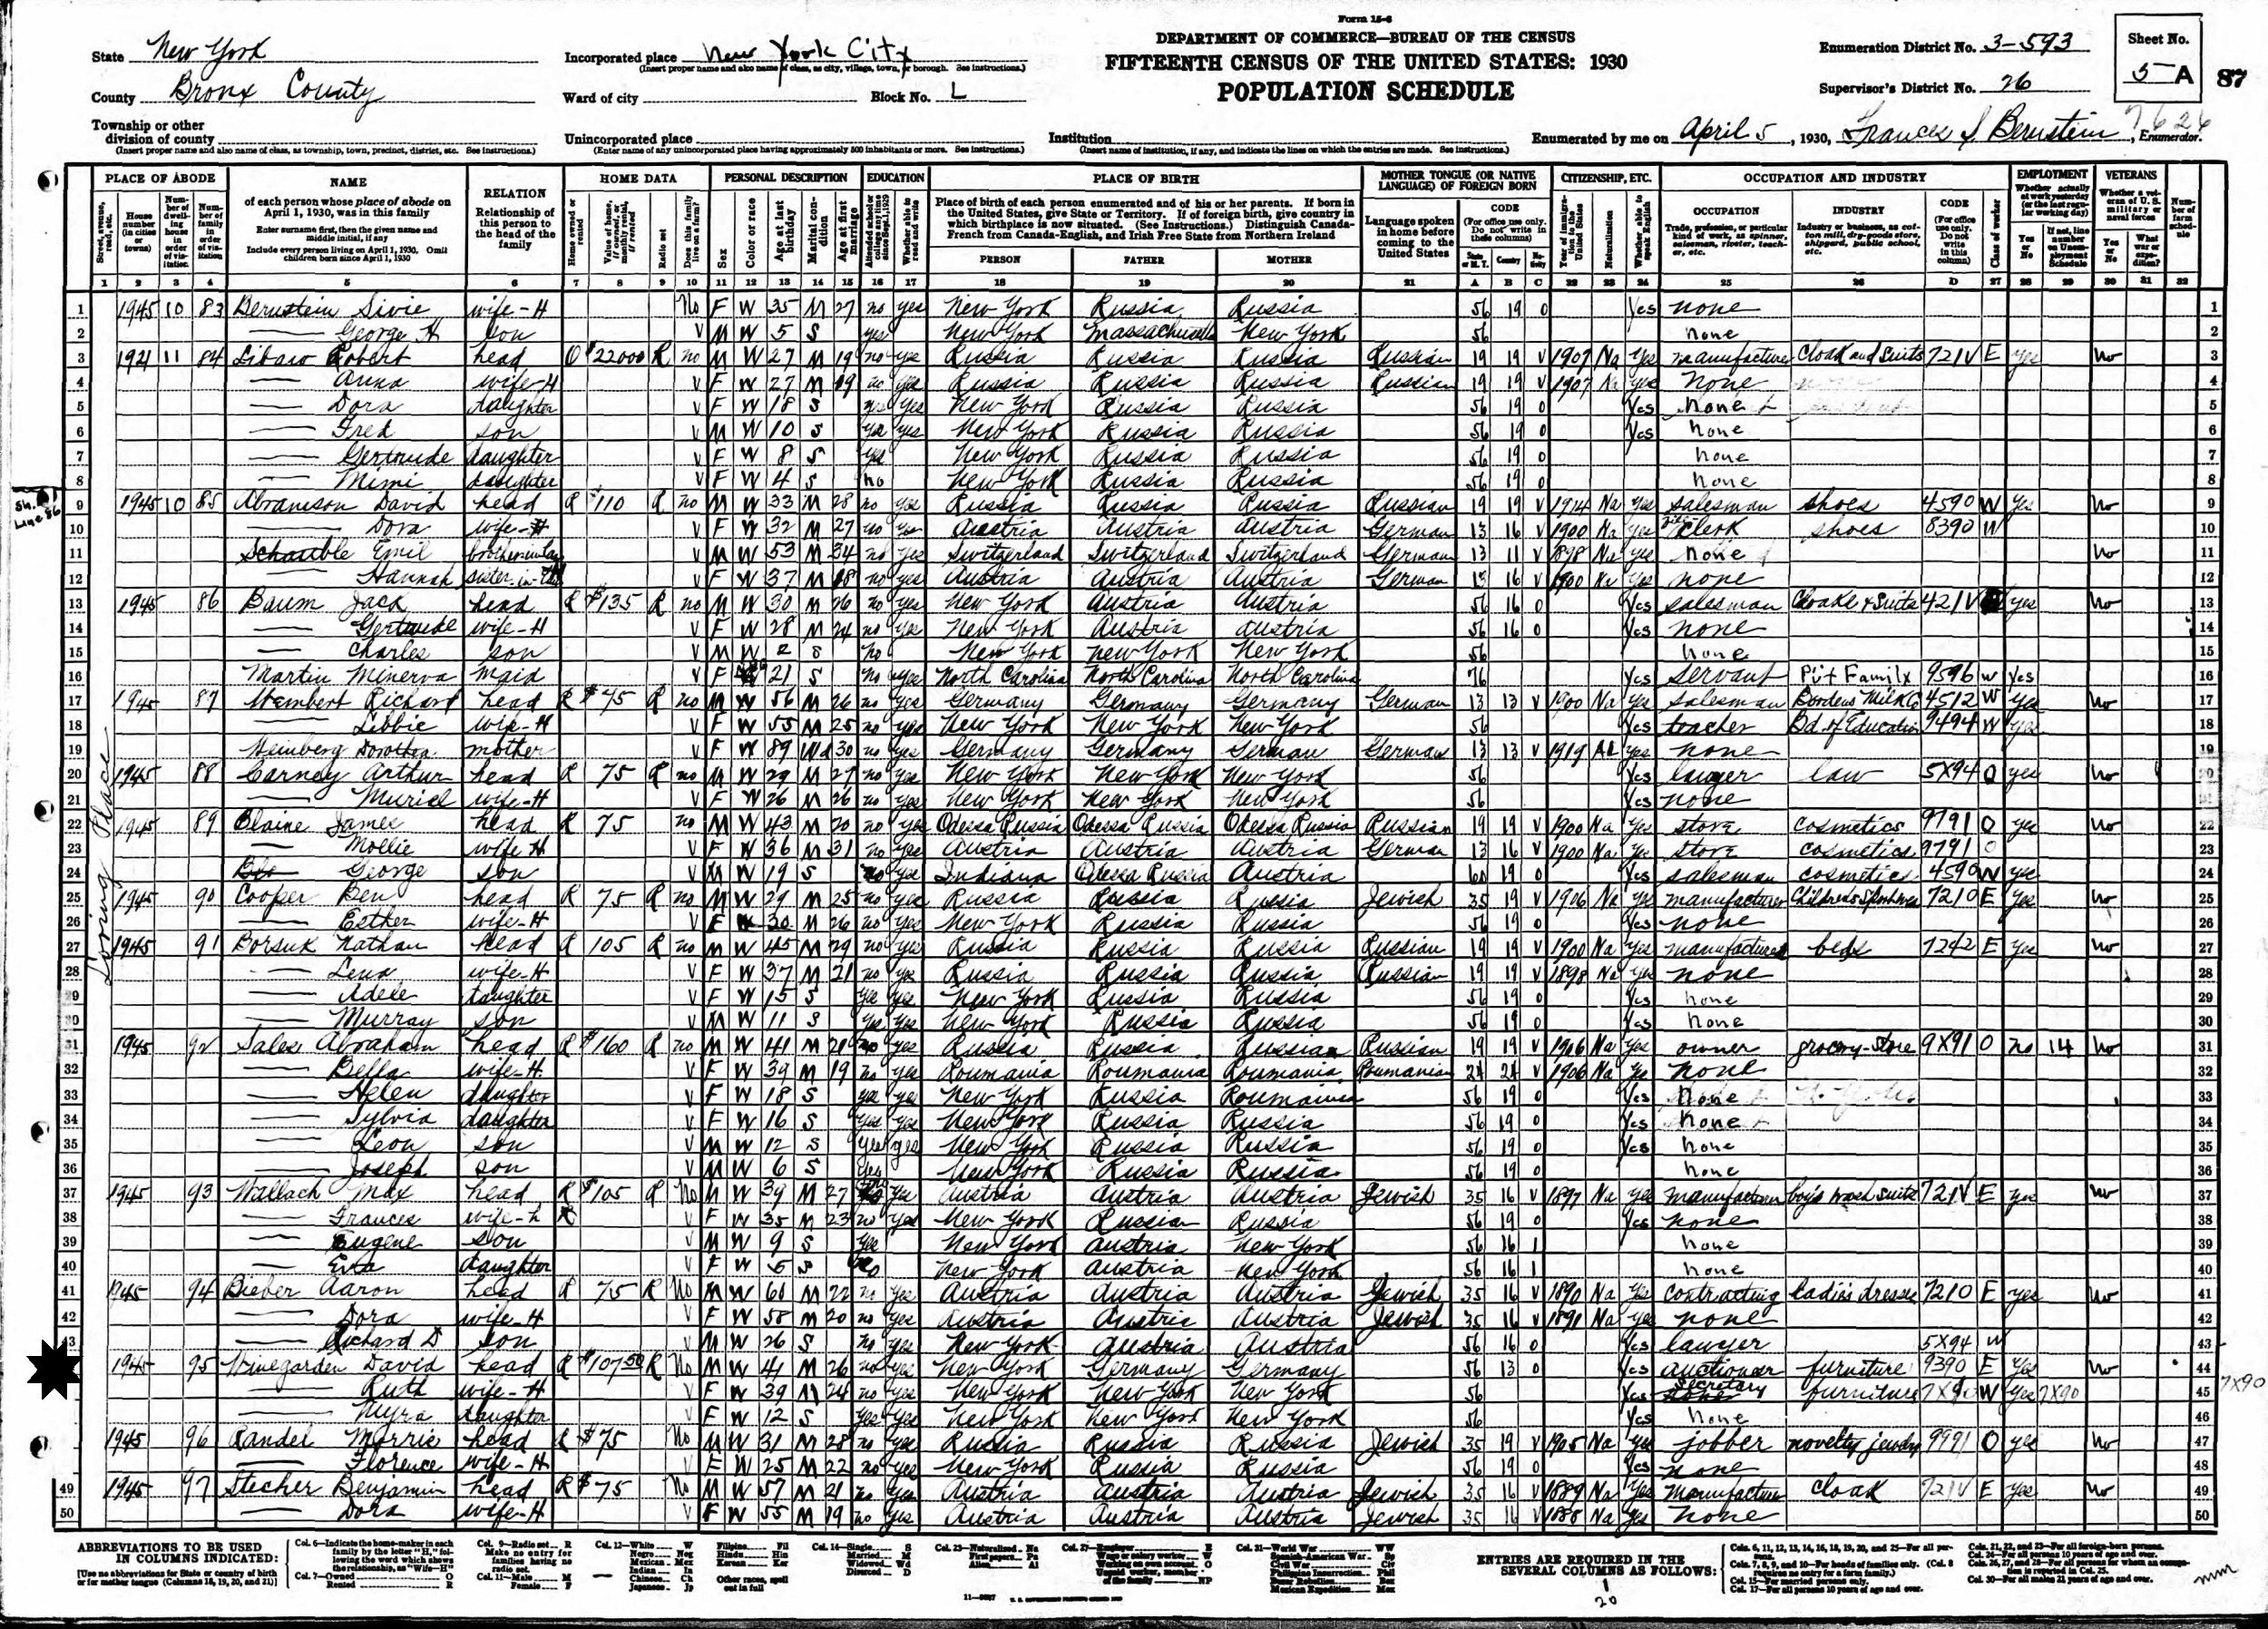 Form 15-6
DEPARTMENT OF COMMERCE—BUREAU OF THE CENSUS
FIFTEENTH CENSUS OF THE UNITED STATES: 1930
POPULATION SCHEDULE
State New York
County Bronx County
Township or other division of county
(Insert proper name and also name of class, as township, town, precinct, district, etc. See instructions.)
Incorporated place New York City
(Insert proper name and also name of class, as city, village, town, or borough. See instructions.)
Ward of city Block No. L
Unincorporated place
(Enter name of any unincorporated place having approximately 500 inhabitants or more. See instructions.)
Institution
(Insert name of institution, if any, and indicate the lines on which the entries are made. See instructions.)
Enumeration District No. 3-593
Supervisor's District No. 26
Sheet No. 5 A
87
Enumerated by me on April 5, 1930, Frances S Bernstein, Enumerator.
7626
PLACE OF ABODE NAME RELATION HOME DATA PERSONAL DESCRIPTION EDUCATION PLACE OF BIRTH MOTHER TONGUE (OR NATIVE LANGUAGE) OF FOREIGN BORN CITIZENSHIP, ETC. OCCUPATION AND INDUSTRY EMPLOYMENT VETERANS
of each person whose place of abode on April 1, 1930, was in this family
Enter surname first, then the given name and middle initial, if any
Include every person living on April 1, 1930. Omit children born since April 1, 1930
Relationship of this person to the head of the family
Place of birth of each person enumerated and of his or her parents. If born in the United States, give State or Territory. If of foreign birth, give country in which birthplace is now situated. (See Instructions.) Distinguish Canada-French from Canada-English, and Irish Free State from Northern Ireland
PERSON FATHER MOTHER
Language spoken in home before coming to the United States
CODE
OCCUPATION INDUSTRY CODE
1 2 3 4 5 6 7 8 9 10 11 12 13 14 15 16 17 18 19 20 21 A B C 22 23 24 25 26 D 27 28 29 30 31 32
Loring Place
1 1945 10 83 Bernstein Sivie wife-H No F W 35 M 27 no yes New York Russia Russia 56 19 0 Yes none
2 George H son V M W 5 S yes New York Massachusetts New York 56 none
3 1921 11 84 Libaw Robert head O $22000 R no M W 27 M 19 no yes Russia Russia Russia Russian 19 19 V 1907 Na Yes manufacturer Cloak and Suits 721V E yes No
4 Anna wife-H V F W 27 M 19 no yes Russia Russia Russia Russian 19 19 V 1907 Na yes none
5 Dora daughter V F W 18 S yes New York Russia Russia 56 19 0 Yes none
6 Fred son V M W 10 S yes yes New York Russia Russia 56 19 0 Yes none
7 Gertrude daughter V F W 8 S yes New York Russia Russia 56 19 0 none
8 Mimi daughter V F W 4 S no New York Russia Russia 56 19 0 none
9 1945 10 85 Abramson David head R $110 R no M W 33 M 28 no yes Russia Russia Russia Russian 19 19 V 1914 Na Yes salesman shoes 4590 W Yes No
10 Dora wife-H V F W 32 M 27 no yes Austria Austria Austria German 13 16 V 1900 Na Yes Clerk shoes 8390 W
11 Schauble Emil brother in law V M W 53 M 34 no Yes Switzerland Switzerland Switzerland German 13 11 V 1898 Na yes none No
12 Hannah sister-in-law V F W 37 M 18 no yes Austria Austria Austria German 13 16 V 1900 Na Yes none
13 1945 86 Baum Jack head R $135 R no M W 30 M 26 no yes New York Austria Austria 56 16 0 Yes salesman Cloaks & Suits 421V yes No
14 Gertrude wife-H V F W 28 M 24 no yes New York Austria Austria 56 16 0 Yes none
15 Charles son V M W 2 S no New York New York New York 56 none
16 Martin Minerva maid V F 21 S No yes North Carolina North Carolina North Carolina 76 Yes servant Pvt Family 9596 W Yes
17 1945 87 Wembert Richard head R $45 R no M W 56 M 26 no yes Germany Germany Germany German 13 13 V 1900 Na Yes salesman Bordens Milk Co 4512 W Yes No
18 Libbie wife-H V F W 55 M 25 no yes New York New York New York 56 Yes teacher Bd. of Education 9494 W yes
19 Weinberg Dorothea mother V F W 89 Wd 30 no yes Germany Germany German German 13 13 V 1919 Al Yes none
20 1945 88 Carney Arthur head R 75 R no M W 29 M 27 no yes New York New York New York 56 Yes lawyer law 5X94 O yes No
21 Muriel wife-H V F W 26 M 26 no yes New York New York New York 56 Yes none
22 1945 89 Elaine James head R 75 no M W 43 M 20 no yes Odessa Russia Odessa Russia Odessa Russia Russian 19 19 V 1900 Na Yes store cosmetics 9791 O yes No
23 Mollie wife H V F W 36 M 31 no yes Austria Austria Austria German 13 16 V 1900 Na Yes store cosmetics 9791 O
24 George son V M W 19 S no yes Indiana Odessa Russia Austria 60 19 0 Yes salesman cosmetics 4590 W yes
25 1945 90 Cooper Ben head R 75 R no M W 29 M 25 no yes Russia Russia Russia Jewish 35 19 V 1906 Na Yes manufacturer Childrens Sportswear 7210 E Yes No
26 Esther wife-H V F W 30 M 26 no yes New York Russia Russia 56 19 0 Yes none
27 1945 91 Borsuk Nathan head R 105 R no M W 45 M 29 no yes Russia Russia Russia Russian 19 19 V 1900 Na Yes manufacturer beds 7242 E Yes No
28 Lena wife-H V F W 37 M 21 no yes Russia Russia Russia Russian 19 19 V 1898 Na yes none
29 Adele daughter V F W 15 S yes yes New York Russia Russia 56 19 0 Yes none
30 Murray son V M W 11 S Yes Yes New York Russia Russia 56 19 0 Yes none
31 1945 92 Sales Abraham head R $160 R no M W 41 M 21 no yes Russia Russia Russian Russian 19 19 V 1906 Na Yes owner grocery-store 9X91 O no 14 No
32 Bella wife-H V F W 39 M 19 no yes Roumania Roumania Roumania Roumanian 24 24 V 1906 Na Yes none
33 Helen daughter V F W 18 S yes yes New York Russia Roumania 56 19 0 Yes None
34 Sylvia daughter V F W 16 S Yes yes New York Russia Russia 56 19 0 Yes none
35 Leon son V M W 12 S Yes yes New York Russia Russia 56 19 0 Yes none
36 Joseph son V M W 6 S Yes New York Russia Russia 56 19 0 none
37 1945 93 Wallach Max head R $105 R No M W 39 M 27 Yes Austria Austria Austria Jewish 35 16 V 1897 Na Yes manufacturer boys wash suits 721V E yes No
38 Frances wife-h V F W 35 M 23 no Yes New York Russian Russia 56 19 0 Yes none
39 Eugene son V M W 9 S Yes New York Austria New York 56 16 1 none
40 daughter V F W S New York Austria New York 56 16 1 none
41 1945 94 Bieber Aaron head R 75 R No M W 60 M 22 no Yes Austria Austria Austria Jewish 35 16 V 1890 Na Yes contracting ladies dresses 7210 E yes No
42 Dora wife-H V F W 58 M 20 no yes Austria Austria Austria Jewish 35 16 V 1891 Na yes none
43 Richard D son V M W 26 S No yes New York Austria Austria 56 16 0 Yes lawyer 5X94 W
44 1945 95 Winegarden David head R $107.50 R No M W 41 M 26 no yes New York Germany Germany 56 13 0 Yes auctioneer furniture 9390 E Yes No
45 Ruth wife-H V F W 39 M 24 no Yes New York New York New York 56 Yes secretary furniture 7X90 W Yes 7X90
7X90
46 Myra daughter V F W 12 S Yes Yes New York New York New York 56 Yes none
47 1945 96 Randel Morris head R $75 No M W 31 M 28 no yes Russia Russia Russia Jewish 35 19 V 1905 Na Yes jobber novelty jewelry 9991 O yes No
48 Florence wife-H V F W 25 M 22 no yes New York Russia Russia 56 19 0 Yes none
49 1945 97 Stecher Benjamin head R $75 No M W 57 M 21 no yes Austria Austria Austria Jewish 35 16 V 1889 Na Yes manufacturer cloak 721V E Yes No
50 Dora wife-H V F W 55 M 19 no Yes Austria Austria Austria Jewish 35 16 V 1888 Na Yes none
ABBREVIATIONS TO BE USED IN COLUMNS INDICATED:
[Use no abbreviations for State or country of birth or for mother tongue (Columns 18, 19, 20, and 21)]
ENTRIES ARE REQUIRED IN THE SEVERAL COLUMNS AS FOLLOWS:
mm